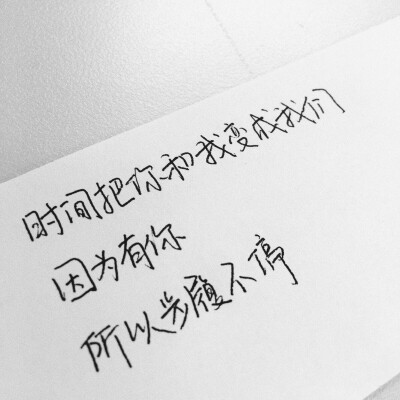 时间把你和我变成我们
因为有你
所以步履不停